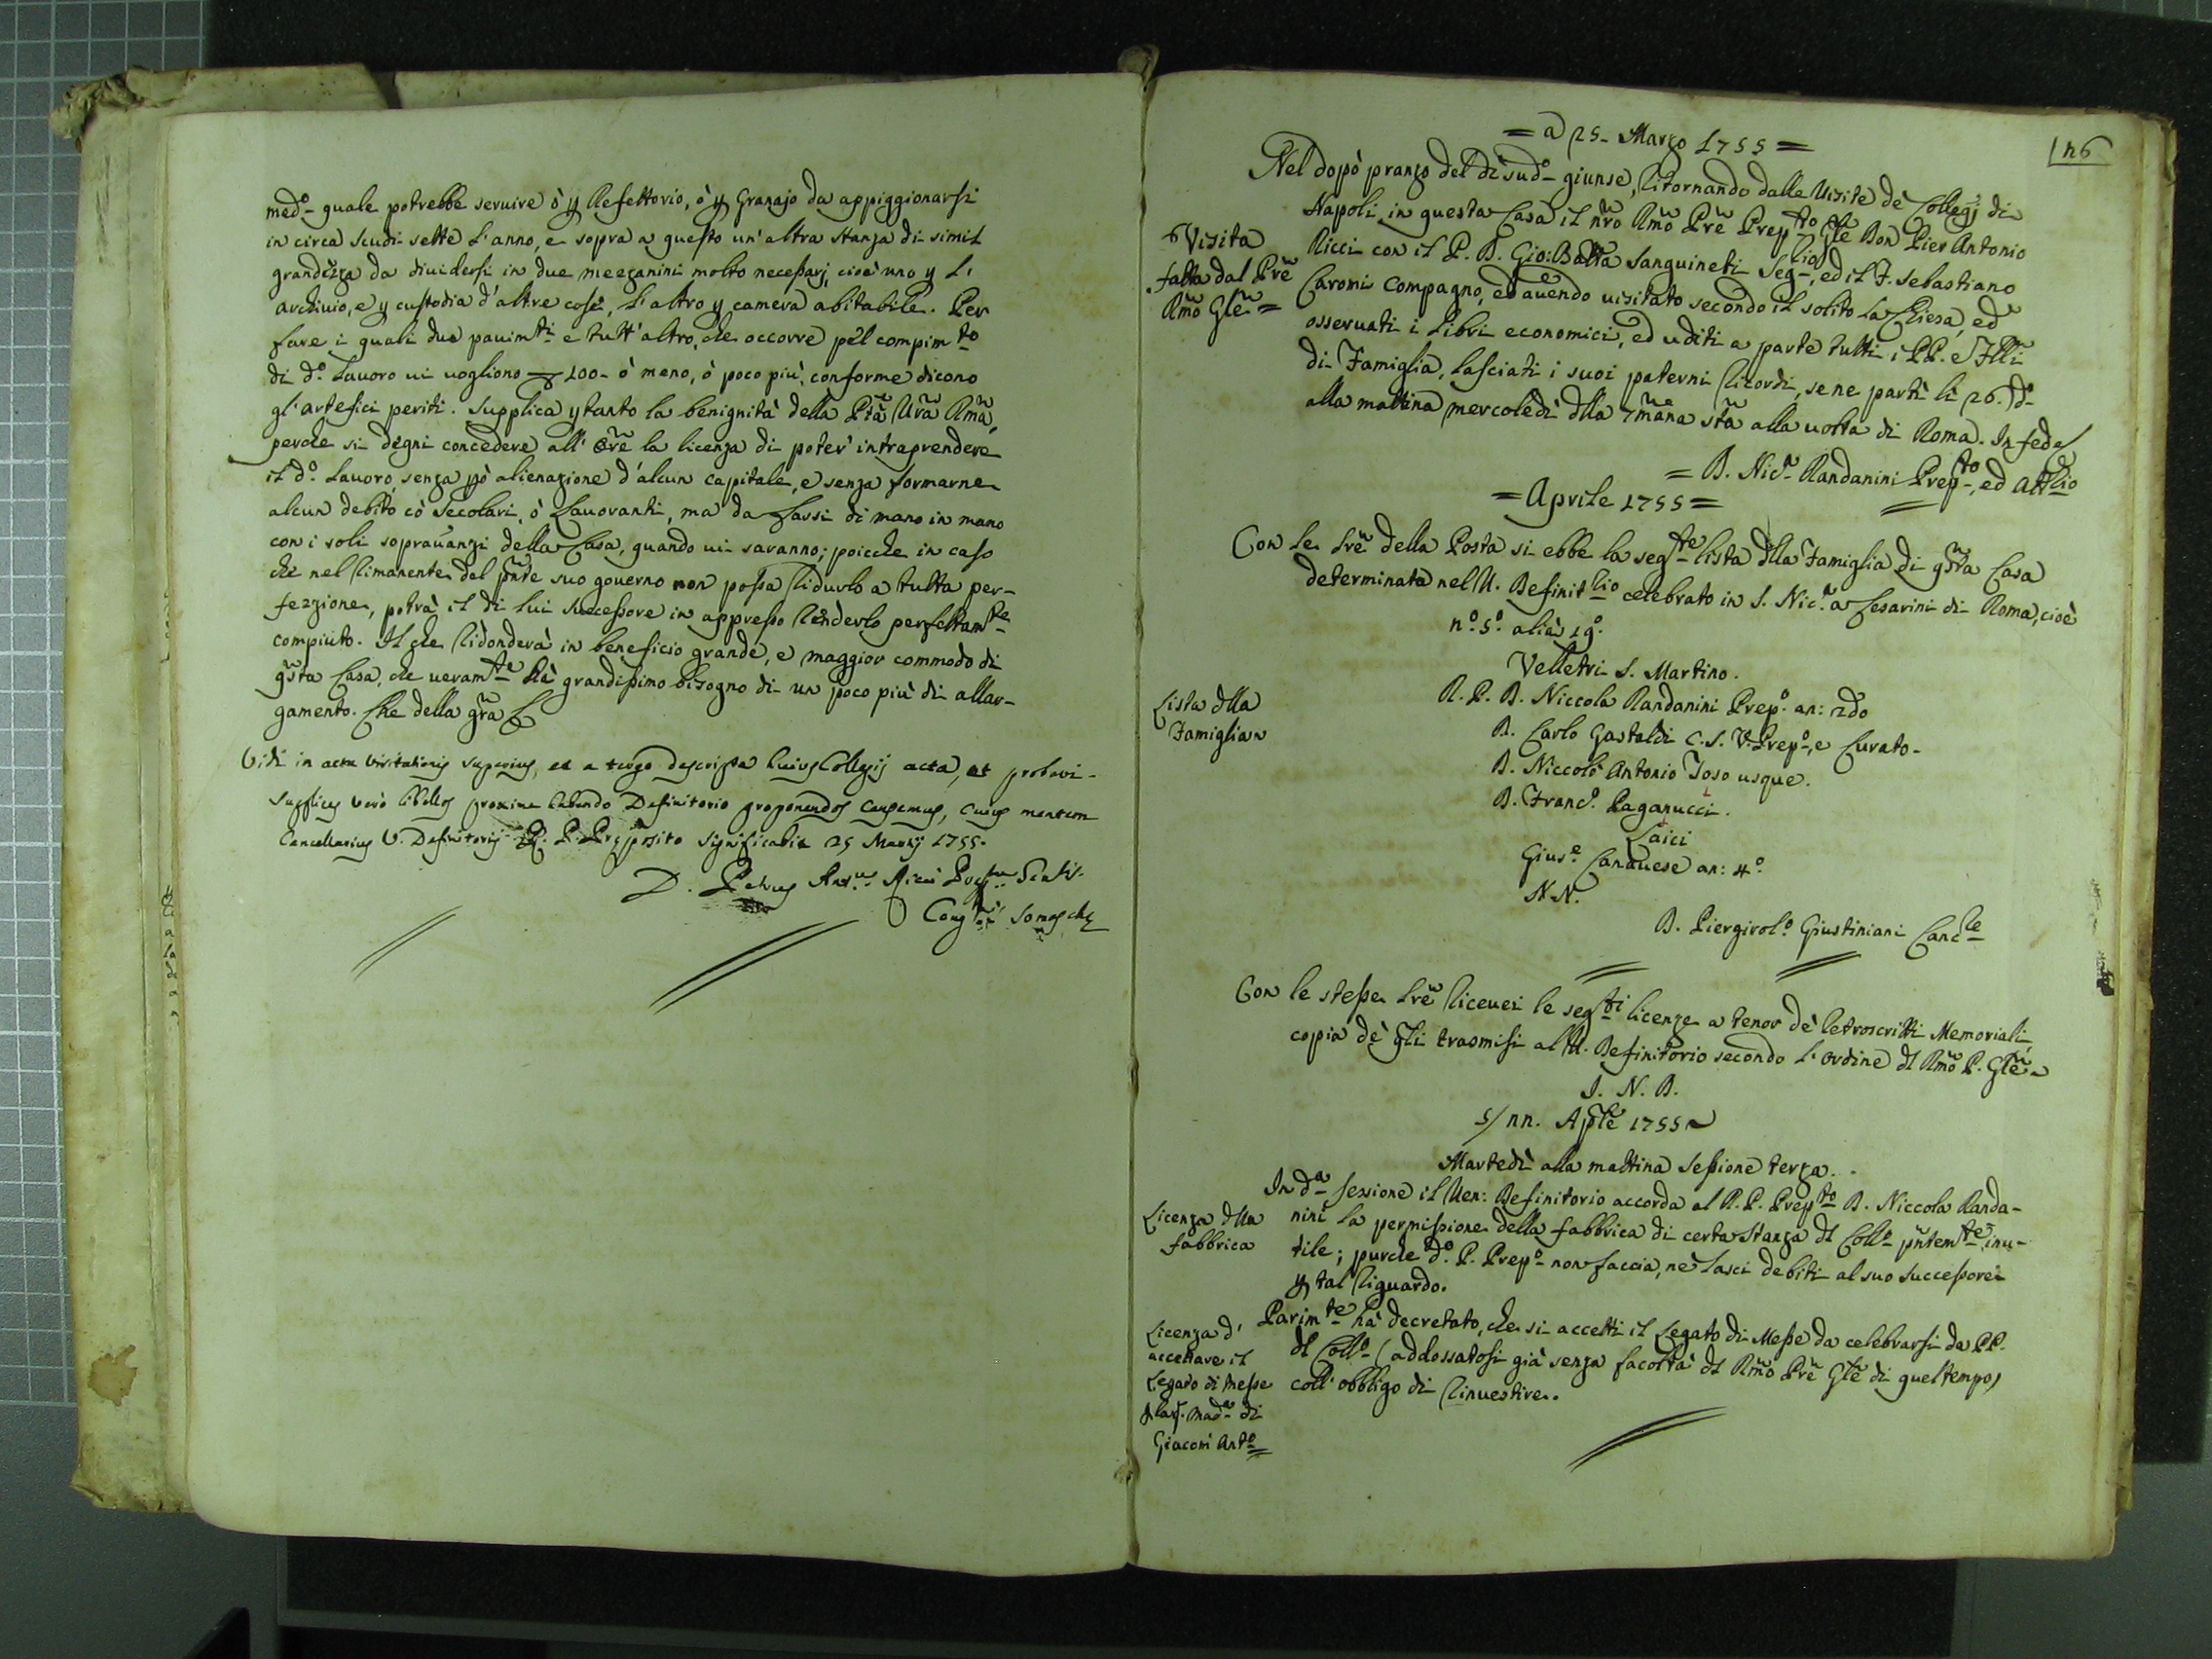 med.º quale potrebbe seruire ò p Refettorio, ò p Granajo da appiggionarsi
in circa scudi sette l'anno, e sopra a questo un'altra stanza di simil
grandezza da diuidersi in due mezzanini molto necessarj, cioè uno p l'
archiuio, e p custodia d'altre cose, l'altro p camera abitabile. Per
fare i quali due pauimti e tutt'altro, che occorre pel compimto
di d.º lauoro ui uogliono 100- ò meno, ò poco più, conforme dicono
gl'artefici periti. Supplica ptanto la benignità della Ptã Vrã Rmã,
perche si degni concedere all' Orẽ la licenza di poter' intraprendere
il d.º lauoro, senza pò alienazione d'alcun capitale, e senza formarne
alcun debito cò Secolari, ò lauoranti, ma da farsi di mano in mano
con i soli soprauanzi della Casa, quando ui saranno; poicche in caso
che nel rimanente del pñte suo gouerno non possa ridurlo a tutta per-
fezzione, potrà il di lui Successore in appresso renderlo perfettamte
compiuto. Il che ridonderà in beneficio grande, e maggior commodo di
qsta Casa, che ueramte hà grandissimo bisogno di un poco più di allar-
gamento. Che della gra &
Vidi in actu visitationis superius, et a tergo descripta huius Collegij acta, et probavi-
supplices verò libellos proxime habendo Definitorio proponendos censemus, cuius mentem
Cancellarius V. Definitorij P. Præposito significabit 25 Martij 1755.
D. Petrus Ant.us Ricci Præp.tus Gralis
Cong.nis Somaschæ
126
= a 25- Marzo 1755 =
Nel dopò pranzo del dì sud.º giunse, ritornando dalle Uisite de' Collegj di
Napoli in questa Casa il nrõ Rmõ Prẽ Prepto Glẽ Don Pier Antonio
Visita
fatta dal Prẽ
Rmõ Glẽ =
Ricci con il P. D. Gio: Batta Sanguineti Seg.rio, ed il F. Sebastiano
Caroni Compagno, ed auendo uisitato secondo il solito la Chiesa, ed
osseruati i Libri economici, ed uditi a parte tutti i PP. e Flli
di Famiglia, lasciati i suoi paterni ricordi, se ne partì li 26. d.º
alla mattina mercoledì dlla 7mãna stã alla uolta di Roma. In fede
= D. Nic.ª Randanini Prepto, ed Attlio
= Aprile 1755 =
Con le lrẽ della Posta si ebbe la segte lista dlla Famiglia di qsta Casa
determinata nel U. Definitrio celebrato in S. Nic.ª a Cesarini di Roma, cioè
n.º 5.º alià 19.º
Velletri S. Martino.
Lista dlla
Famiglia
R. P. D. Niccola Randanini Prep.º an: 2do
D. Carlo Gastaldi C. S. V.Prep.º, e Curato-
D. Niccolò Antonio Toso usque.
D. Franc.º Paganucci.
Laici
Gius.e Canauese an: 4.º
N.N.
D. Piergirol.º Giustiniani Cancle
Con le stesse lrẽ riceuei le segti licenze a tenor de' retroscritti Memoriali,
copia de' qli trasmisi al U. Definitorio secondo l'ordine dl Rmõ P. Glẽ
I. N. D.
Aplẽ 1755
Martedì alla mattina Sessione terza.
Licenza dlla
fabbrica
In d.ª sessione il Uen: Definitorio accorda al R. P. Prepto D. Niccola Randa-
nini la permissione della fabbrica di certa stanza dl Coll.º pñtemte inu-
tile; purche d.º P. Prep.º non faccia, nè lasci debiti al suo successore
p tal riguardo.
Licenza d'
accettare il
Legato di Messe
di
Giaconi Ant.º
Parimte hà decretato, che si accetti il Legato di Messe da celebrarsi da PP.
dl Coll.º (addossatosi già senza facoltà dl Rmõ Prẽ Glẽ di quel tempo)
coll'obbligo di rinuestire.